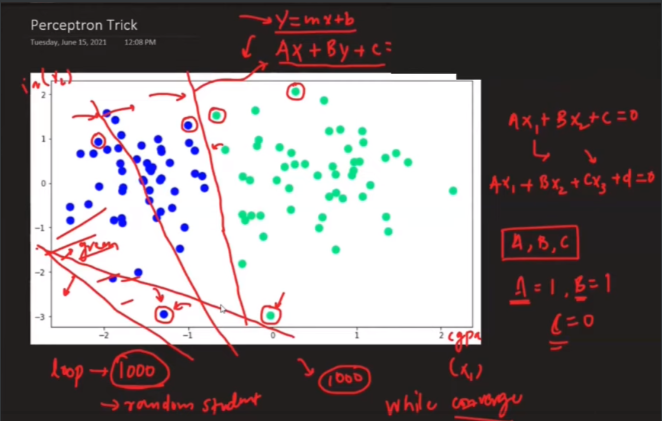 Perceptron Trick
Tuesday, June 15, 2021 12:08 PM
Y=mx+b
Ax+By+c=
2
1
0
-1
-2
-3
-2 -1 0 1 2
green
cgpa
(x₁)
Ax₁+Bx₂+c=0
Ax₁+Bx₂+Cx₃+d=0
A, B, C
A=1, B=1
C=0
loop → 1000
→ random student
1000
while converge